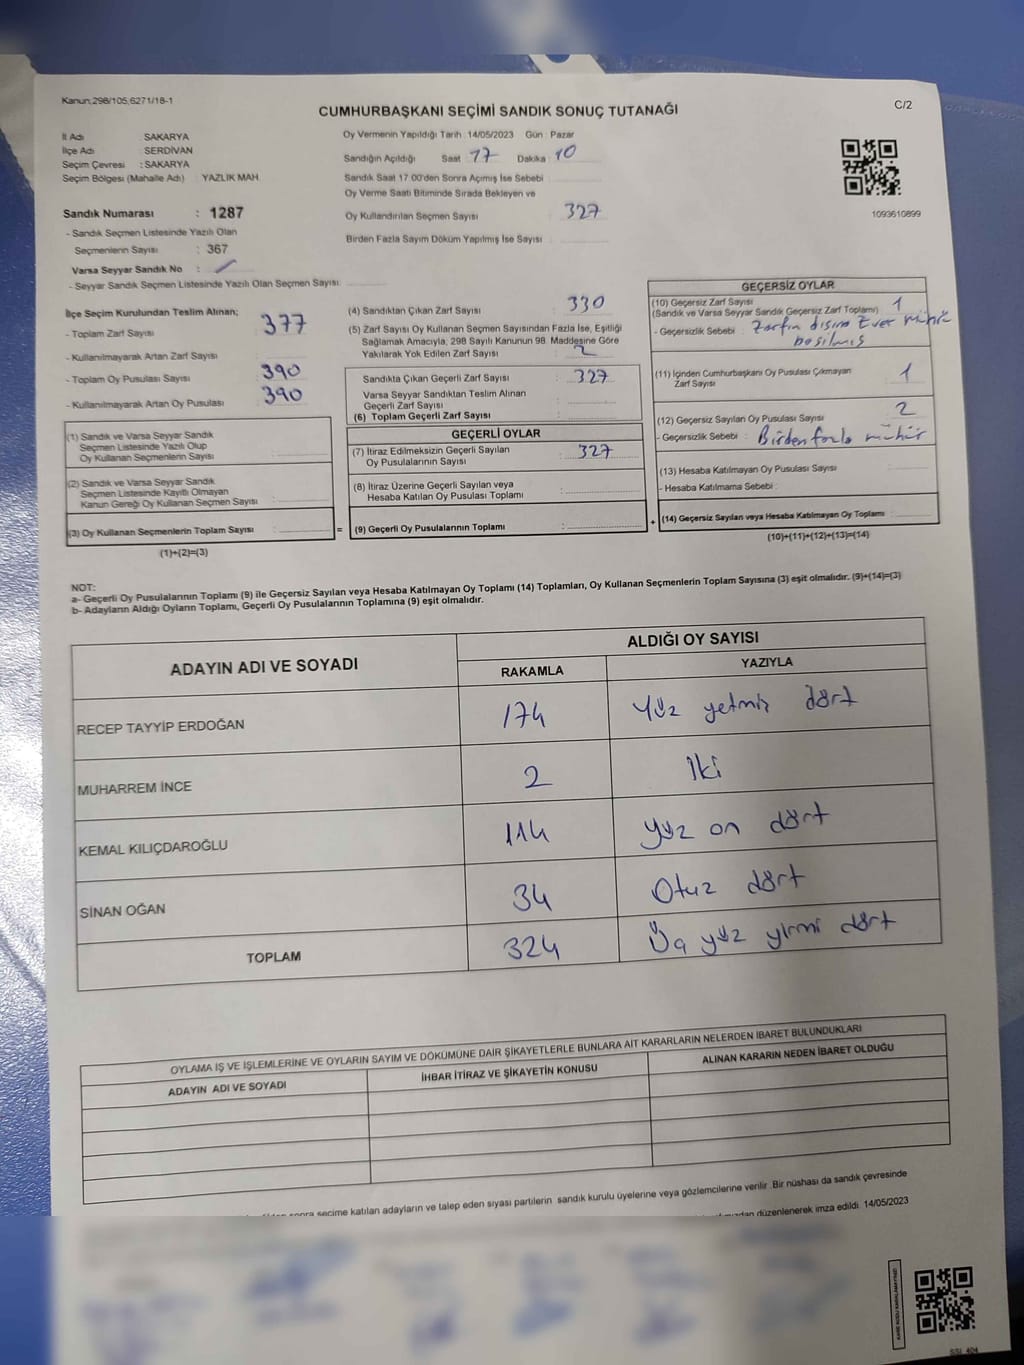 Kanun:298/105,6271/18-1
C/2
CUMHURBAŞKANI SEÇİMİ SANDIK SONUÇ TUTANAĞI
İl Adı SAKARYA
İlçe Adı SERDİVAN
Seçim Çevresi : SAKARYA
Seçim Bölgesi (Mahalle Adı) : YAZLIK MAH.
Sandık Numarası : 1287
- Sandık Seçmen Listesinde Yazılı Olan
Seçmenlerin Sayısı : 367
Varsa Seyyar Sandık No :
- Seyyar Sandık Seçmen Listesinde Yazılı Olan Seçmen Sayısı:
Oy Vermenin Yapıldığı Tarih :14/05/2023 Gün : Pazar
Sandığın Açıldığı Saat : 17 Dakika : 10
Sandık Saat 17:00'den Sonra Açılmış İse Sebebi :
Oy Verme Saati Bitiminde Sırada Bekleyen ve
Oy Kullandırılan Seçmen Sayısı : 327
Birden Fazla Sayım Döküm Yapılmış İse Sayısı :
1093610899
İlçe Seçim Kurulundan Teslim Alınan;
- Toplam Zarf Sayısı : 377
- Kullanılmayarak Artan Zarf Sayısı :
- Toplam Oy Pusulası Sayısı : 390
- Kullanılmayarak Artan Oy Pusulası : 390
(1) Sandık ve Varsa Seyyar Sandık
Seçmen Listesinde Yazılı Olup
Oy Kullanan Seçmenlerin Sayısı :
(2) Sandık ve Varsa Seyyar Sandık
Seçmen Listesinde Kayıtlı Olmayan
Kanun Gereği Oy Kullanan Seçmen Sayısı :
(3) Oy Kullanan Seçmenlerin Toplam Sayısı :
(1)+(2)=(3)
=
(4) Sandıktan Çıkan Zarf Sayısı : 330
(5) Zarf Sayısı Oy Kullanan Seçmen Sayısından Fazla İse, Eşitliği
Sağlamak Amacıyla, 298 Sayılı Kanunun 98. Maddesine Göre
Yakılarak Yok Edilen Zarf Sayısı : 2
Sandıkta Çıkan Geçerli Zarf Sayısı : 327
Varsa Seyyar Sandıktan Teslim Alınan
Geçerli Zarf Sayısı :
(6) Toplam Geçerli Zarf Sayısı :
GEÇERLİ OYLAR
(7) İtiraz Edilmeksizin Geçerli Sayılan
Oy Pusulalarının Sayısı : 327
(8) İtiraz Üzerine Geçerli Sayılan veya
Hesaba Katılan Oy Pusulası Toplamı :
(9) Geçerli Oy Pusulalarının Toplamı :
+
GEÇERSİZ OYLAR
(10) Geçersiz Zarf Sayısı : 1
(Sandık ve Varsa Seyyar Sandık Geçersiz Zarf Toplamı)
- Geçersizlik Sebebi : Zarfın dışına Evet mühür
basılmış
(11) İçinden Cumhurbaşkanı Oy Pusulası Çıkmayan
Zarf Sayısı : 1
(12) Geçersiz Sayılan Oy Pusulası Sayısı : 2
- Geçersizlik Sebebi : Birden fazla mühür
(13) Hesaba Katılmayan Oy Pusulası Sayısı :
- Hesaba Katılmama Sebebi :
(14) Geçersiz Sayılan veya Hesaba Katılmayan Oy Toplamı :
(10)+(11)+(12)+(13)=(14)
NOT:
a- Geçerli Oy Pusulalarının Toplamı (9) ile Geçersiz Sayılan veya Hesaba Katılmayan Oy Toplamı (14) Toplamları, Oy Kullanan Seçmenlerin Toplam Sayısına (3) eşit olmalıdır. (9)+(14)=(3)
b- Adayların Aldığı Oyların Toplamı, Geçerli Oy Pusulalarının Toplamına (9) eşit olmalıdır.
ADAYIN ADI VE SOYADI ALDIĞI OY SAYISI
RAKAMLA YAZIYLA
RECEP TAYYİP ERDOĞAN 174 Yüz yetmiş dört
MUHARREM İNCE 2 İki
KEMAL KILIÇDAROĞLU 114 yüz on dört
SİNAN OĞAN 34 Otuz dört
TOPLAM 324 Üç yüz yirmi dört
OYLAMA İŞ VE İŞLEMLERİNE VE OYLARIN SAYIM VE DÖKÜMÜNE DAİR ŞİKAYETLERLE BUNLARA AİT KARARLARIN NELERDEN İBARET BULUNDUKLARI
ADAYIN ADI VE SOYADI İHBAR İTİRAZ VE ŞİKAYETİN KONUSU ALINAN KARARIN NEDEN İBARET OLDUĞU
sonra seçime katılan adayların ve talep eden siyasi partilerin sandık kurulu üyelerine veya gözlemcilerine verilir. Bir nüshası da sandık çevresinde
düzenlenerek imza edildi. 14/05/2023
SSI_404